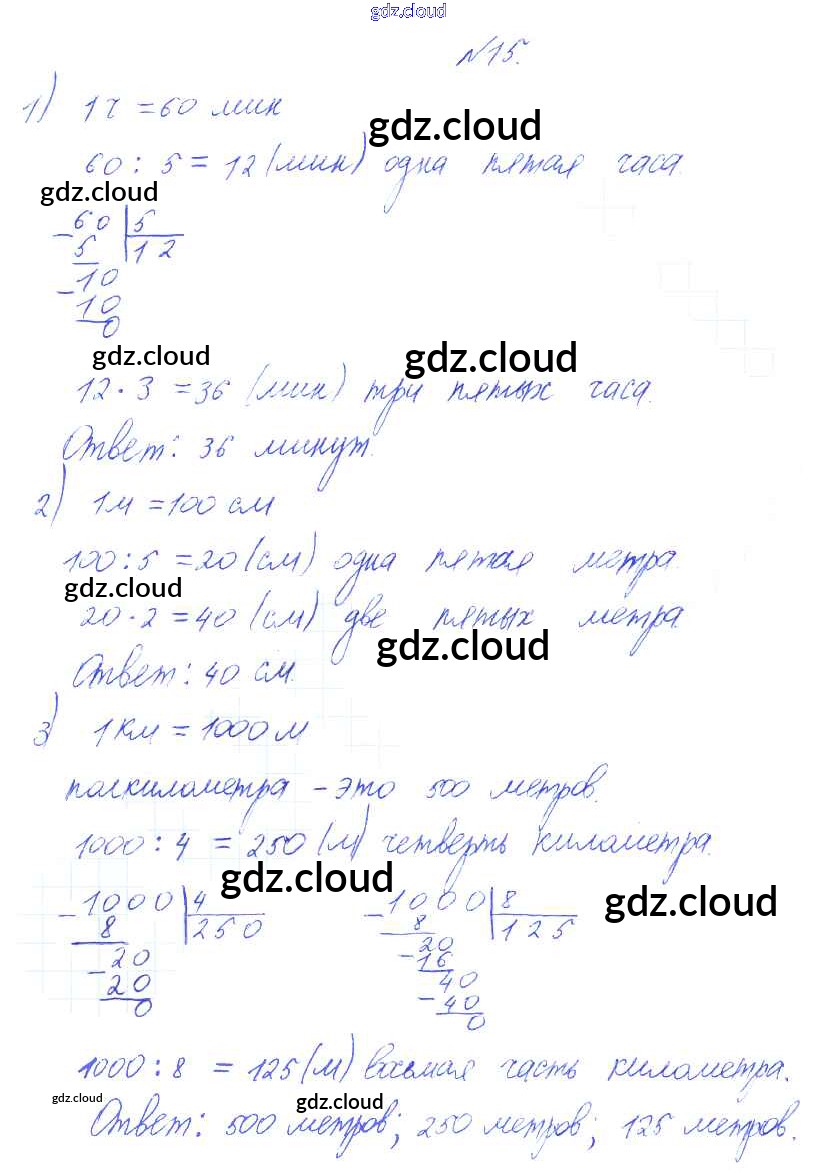 gdz.cloud
№15.
1) 1ч = 60 мин
gdz.cloud
60 : 5 = 12 (мин) одна пятая часа.
gdz.cloud
- 60 | 5
5 | 12
- 10
10
0
gdz.cloud gdz.cloud
12 · 3 = 36 (мин) три пятых часа.
Ответ: 36 минут.
2) 1м = 100 см
100 : 5 = 20 (см) одна пятая метра.
gdz.cloud
20 · 2 = 40 (см) две пятых метра.
gdz.cloud
Ответ: 40 см.
3) 1км = 1000 м
полкилометра – это 500 метров.
1000 : 4 = 250 (м) четверть километра.
gdz.cloud gdz.cloud
- 1000 | 4 - 1000 | 8
8 | 250 8 | 125
- 20 20
20 - 16
0 40
- 40
0
1000 : 8 = 125 (м) восьмая часть километра.
gdz.cloud gdz.cloud
Ответ: 500 метров; 250 метров; 125 метров.